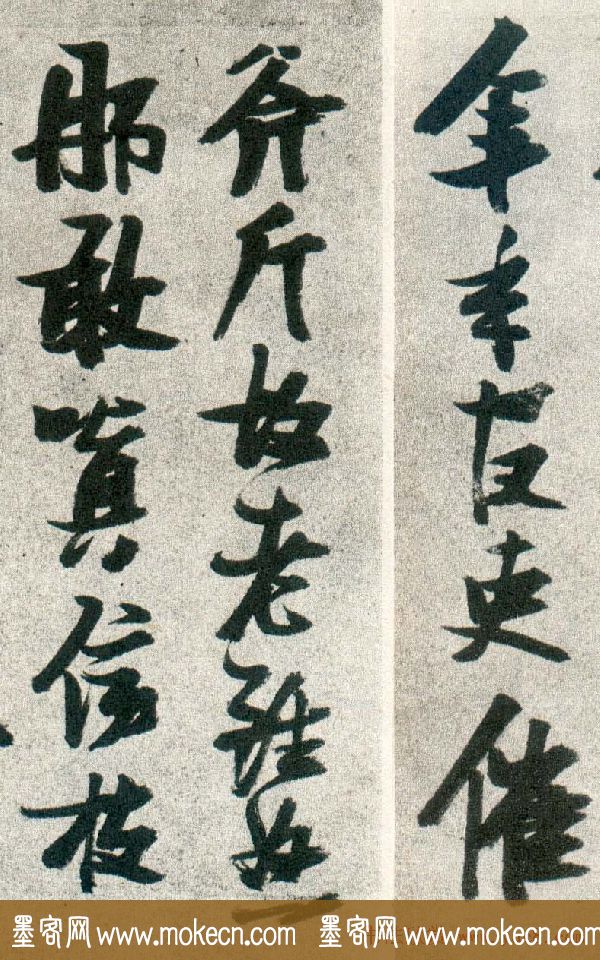 年年吏催
斧斤老
那敢嗔信枝
墨客网 www.mokecn.com 墨客网 www.mokecn.com